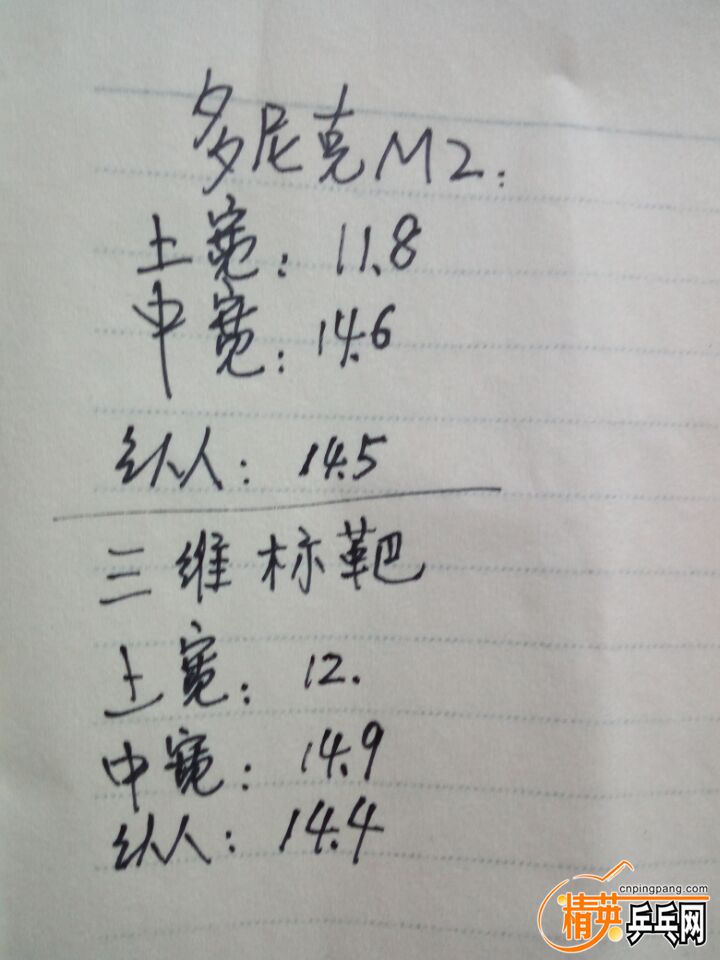 多尼克M2:
上宽: 11.8
中宽: 14.6
纵: 14.5
三维标靶
上宽: 12.
中宽: 14.9
纵: 14.4
cnpingpang.com
精英乒乓网